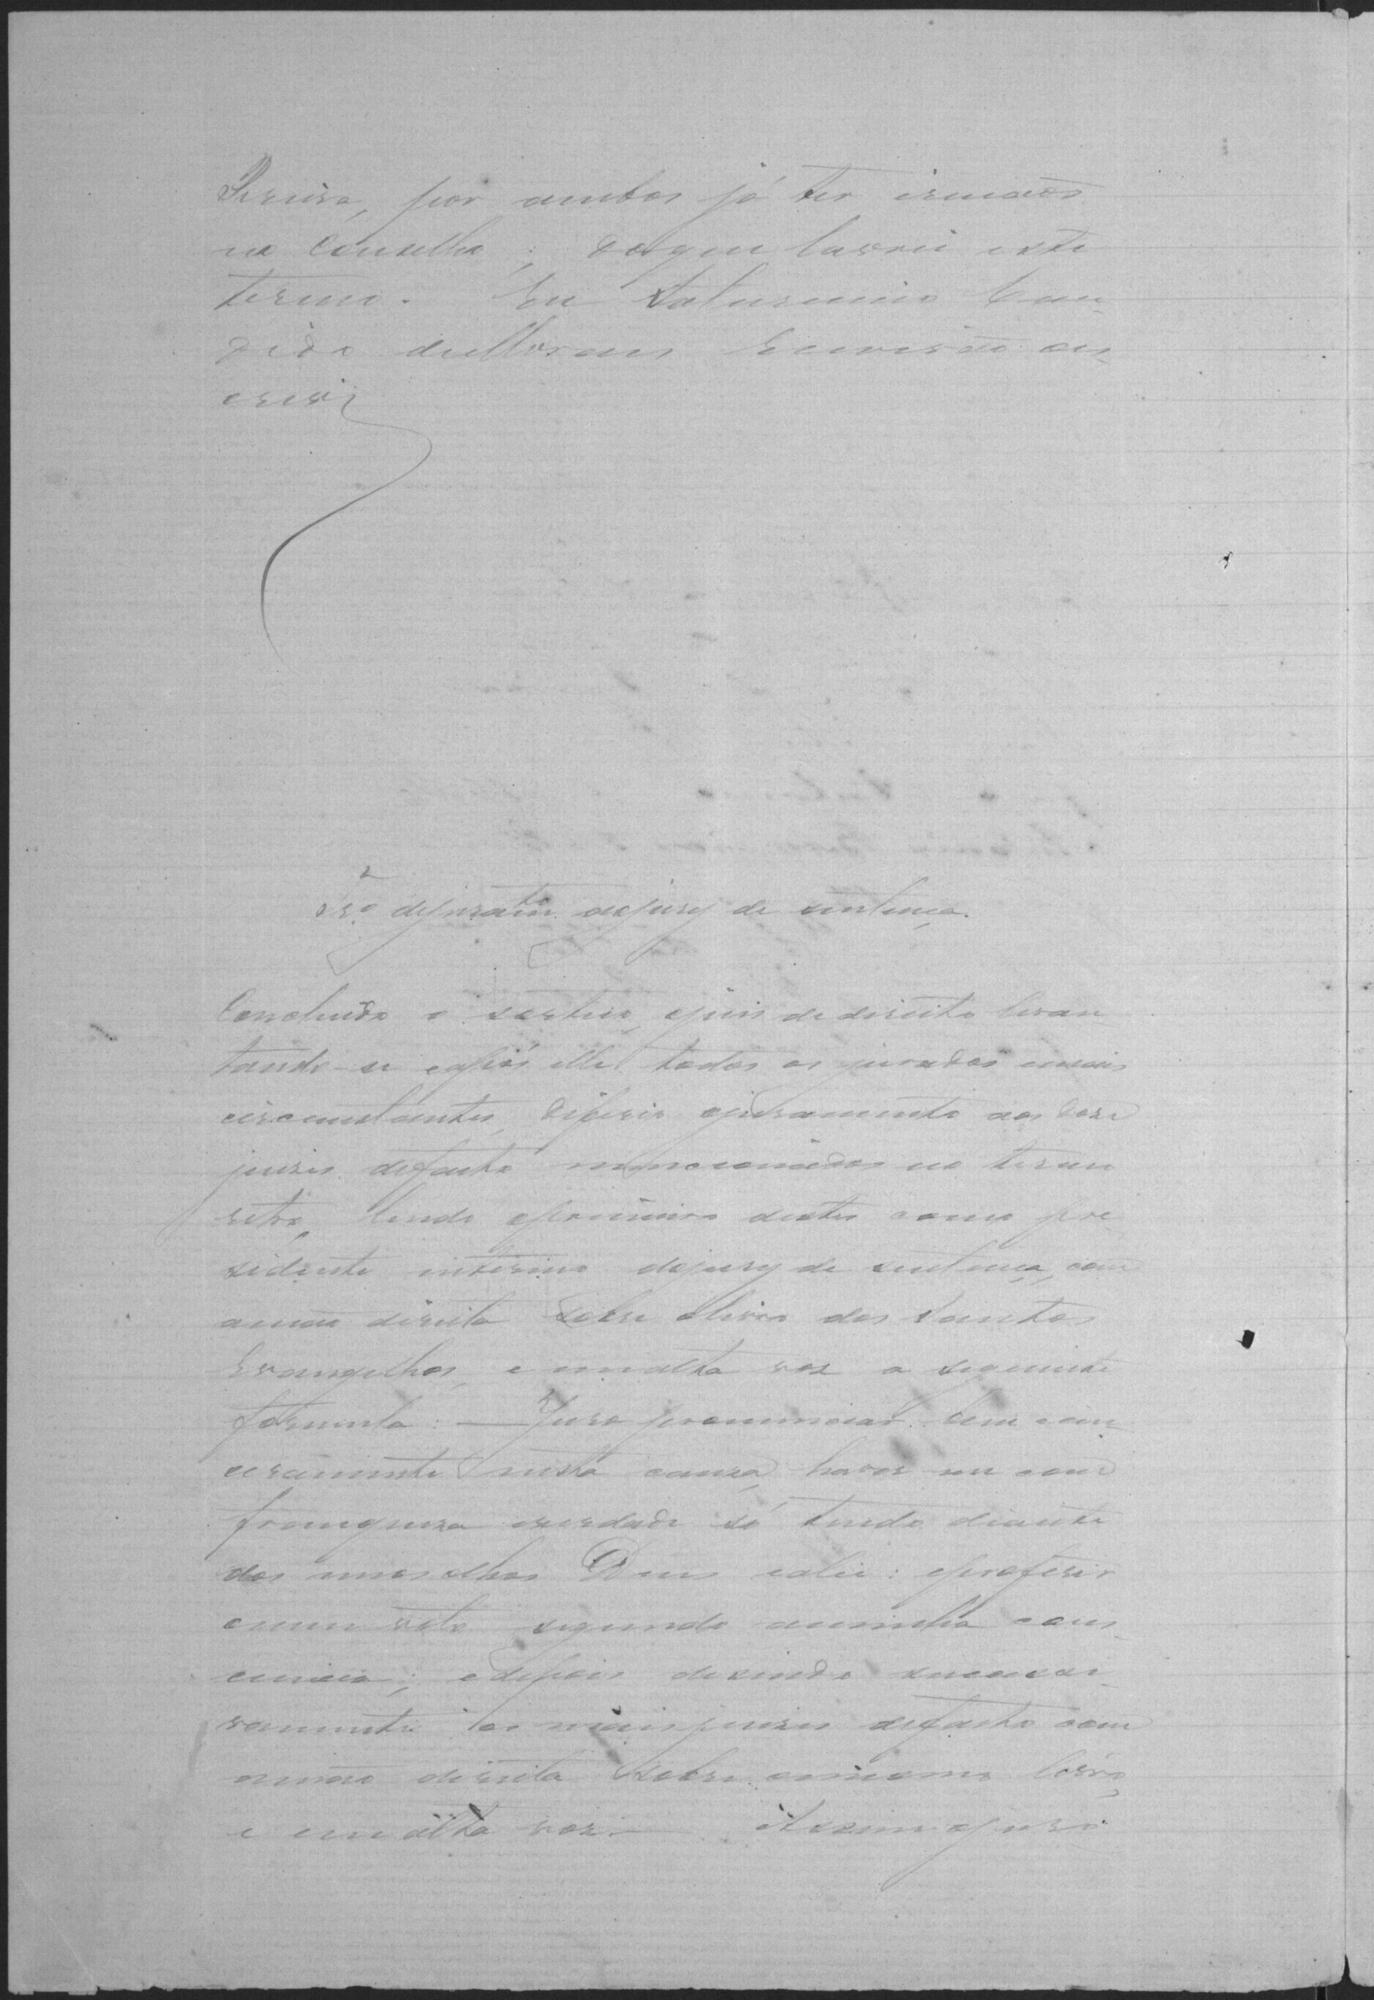 Pereira, por ambos já ter irmaõs
no Conselho; doque lavrei este
termo. Eu Saturnino Can-
dido de Moraes Escrivão es-
crevi
Tr.º dejuramto dojury de sentença.
Concluido o sorteio, ojuis de direito levan
tando-se eapós elle todos os jurados emais
circumstantes, diferio ojuramento aos dose
juises defacto mencionados no termo
retro, lendo oprimeiro destes como pre
sidente interino dojury de sentença, com
amão direita sobre olivro dos Santos
Evangelhos, e emalta voz a seguinte
formula: — Juro pronunciar bem e sin-
ceramente nesta causa, haver me com
franquesa everdade só tendo diante
dos meos olhos Deus ealei: eproferir
omeu voto segundo aminha cons-
ciencia; edepois disendo successi-
vamente os mais juises defacto com
amão direita sobre omesmo livro,
e em alta voz — Assim ojuro